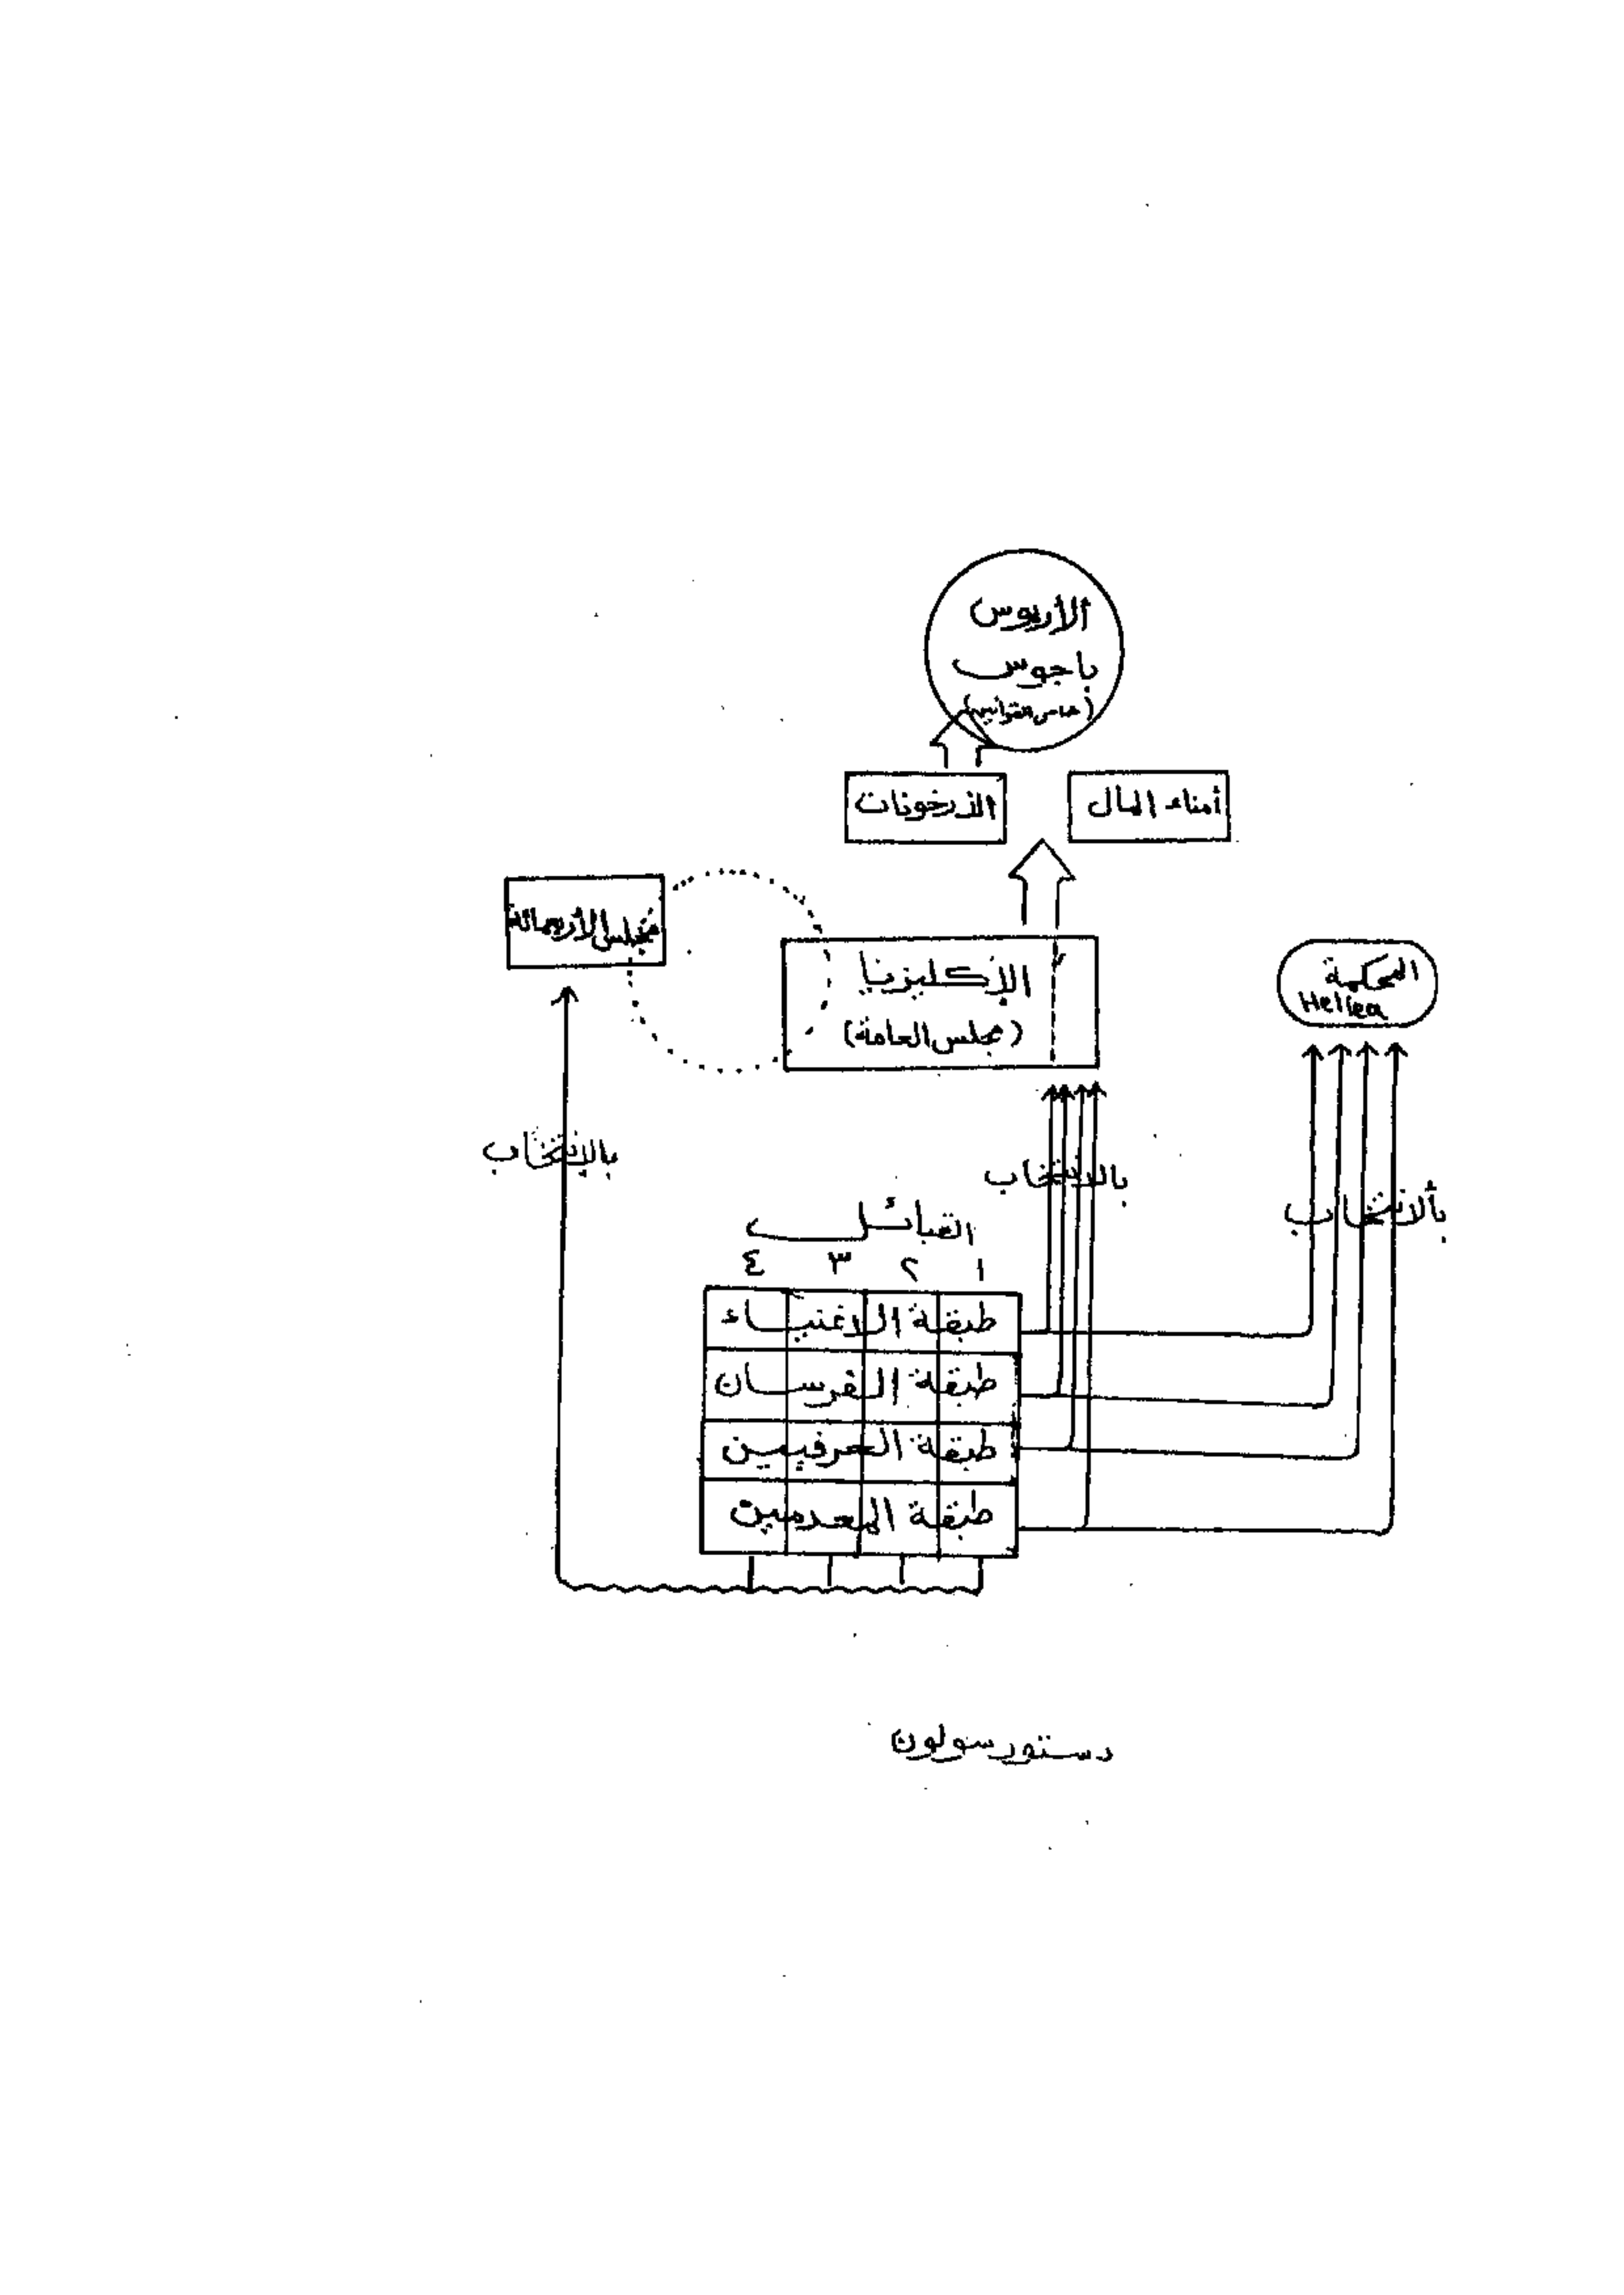 الأريوس
باجوس
(حامى القوانين)
الأرخونات
أمناء المال
مجلس الأربعمائة
الإكليزيا
(مجلس العامة)
المحكمة
Heliea
بالإنتخاب
بالإنتخاب
بالانتخاب
القبائل
١ ٢ ٣ ٤
طبقة الاغنياء
طبقة الفرسان
طبقة الحرفيين
طبقة المعدمين
دستور سولون